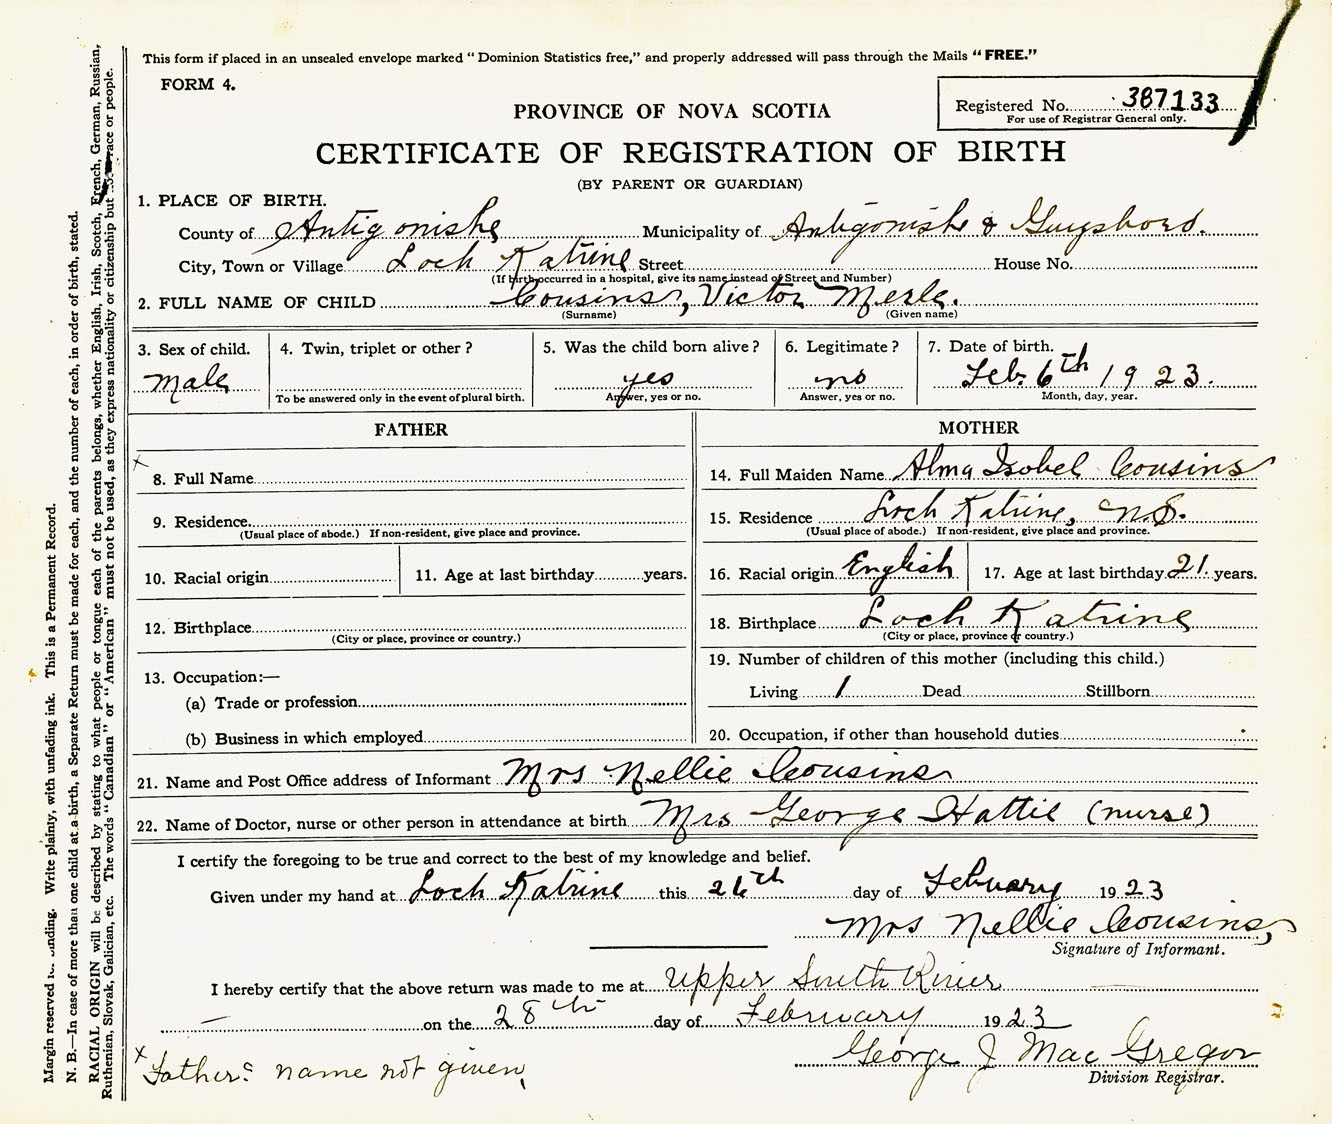 This form if placed in an unsealed envelope marked "Dominion Statistics free," and properly addressed will pass through the Mails "FREE."
FORM 4.
Registered No. 387133
For use of Registrar General only.
PROVINCE OF NOVA SCOTIA
CERTIFICATE OF REGISTRATION OF BIRTH
(BY PARENT OR GUARDIAN)
1. PLACE OF BIRTH.
County of Antigonishe Municipality of Antigonishe & Guysboro.
City, Town or Village Loch Katrine Street House No.
(If birth occurred in a hospital, give its name instead of Street and Number)
2. FULL NAME OF CHILD Cousins, Victor Merle.
(Surname) (Given name)
3. Sex of child. 4. Twin, triplet or other? 5. Was the child born alive? 6. Legitimate? 7. Date of birth.
Male yes no Feb. 6th 1923.
To be answered only in the event of plural birth. Answer, yes or no. Answer, yes or no. Month, day, year.
FATHER MOTHER
x 8. Full Name 14. Full Maiden Name Alma Isobel Cousins
9. Residence. 15. Residence Loch Katrine, N.S.
(Usual place of abode.) If non-resident, give place and province. (Usual place of abode.) If non-resident, give place and province.
10. Racial origin 11. Age at last birthday years. 16. Racial origin English 17. Age at last birthday 21. years.
12. Birthplace 18. Birthplace Loch Katrine
(City or place, province or country.) (City or place, province or country.)
13. Occupation:— 19. Number of children of this mother (including this child.)
(a) Trade or profession Living 1 Dead Stillborn
(b) Business in which employed 20. Occupation, if other than household duties
21. Name and Post Office address of Informant Mrs Nellie Cousins
22. Name of Doctor, nurse or other person in attendance at birth Mrs George Hattie (nurse)
I certify the foregoing to be true and correct to the best of my knowledge and belief.
Given under my hand at Loch Katrine this 26th day of February 1923
Mrs Nellie Cousins,
Signature of Informant.
I hereby certify that the above return was made to me at Upper South River
on the 28th day of February 1923
George J MacGregor
Division Registrar.
x Father's name not given
Margin reserved Write plainly, with unfading ink. This is a Permanent Record.
N. B.—In case of more than one child at a birth, a Separate Return must be made for each, and the number of each, in order of birth, stated.
RACIAL ORIGIN will be described by stating to what people or tongue each of the parents belongs, whether English, Irish, Scotch, French, German, Russian,
Ruthenian, Slovak, Galician, etc. The words "Canadian" or "American" must not be used, as they express nationality or citizenship but race or people.